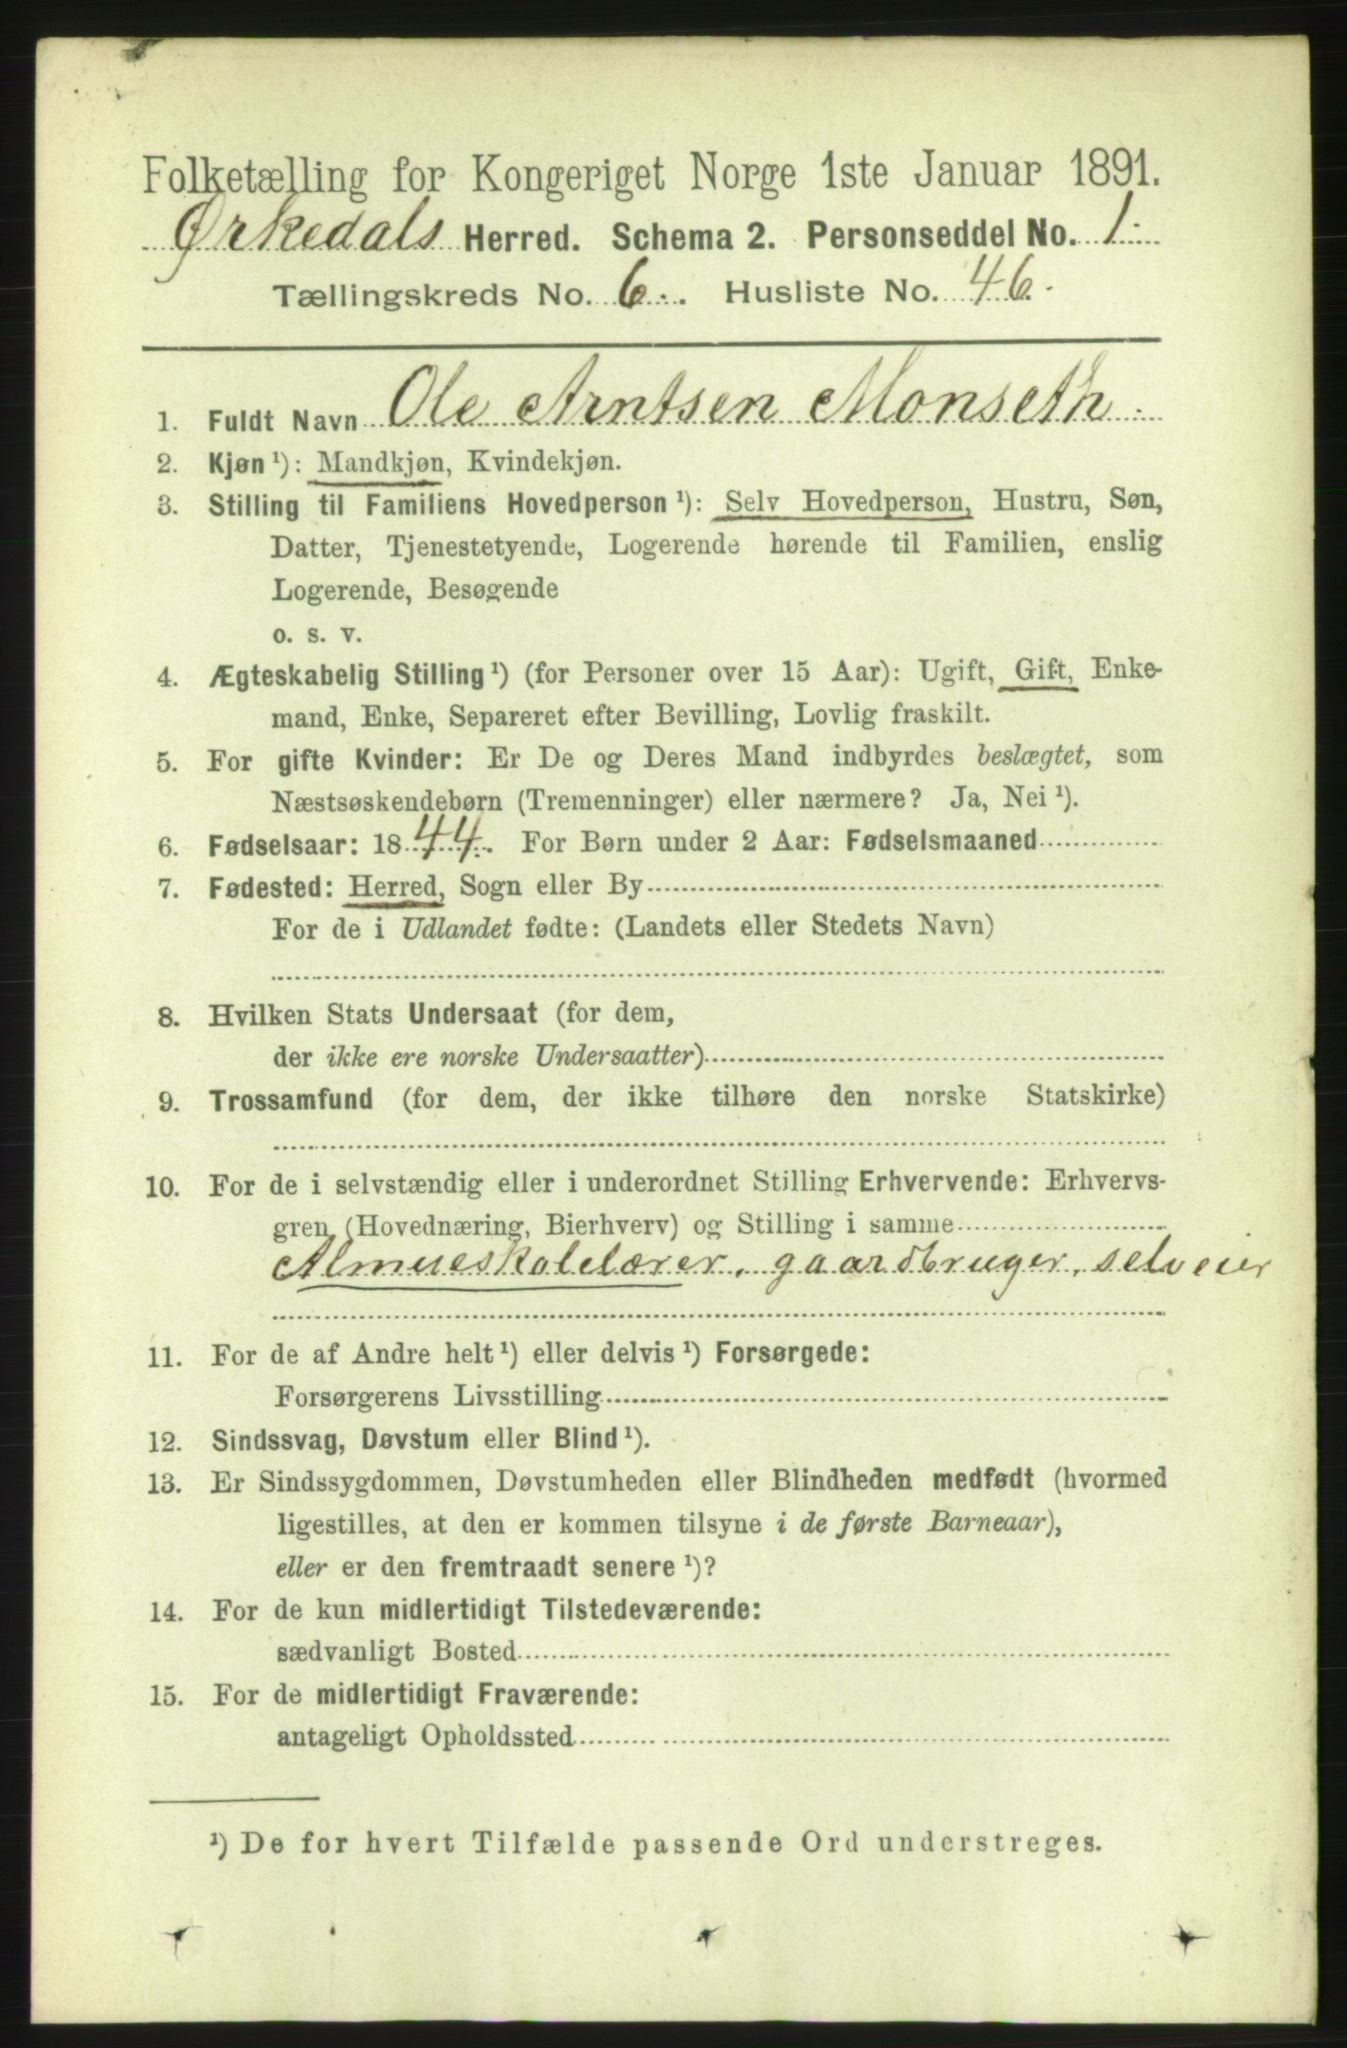 Folketælling for Kongeriget Norge 1ste Januar 1891.
Ørkedals Herred. Schema 2. Personseddel No. 1.
Tællingskreds No. 6. Husliste No. 46.
1. Fuldt Navn Ole Arntsen Monseth.
2. Kjøn ¹): Mandkjøn, Kvindekjøn.
3. Stilling til Familiens Hovedperson ¹): Selv Hovedperson, Hustru, Søn,
Datter, Tjenestetyende, Logerende hørende til Familien, enslig
Logerende, Besøgende
o. s. v.
4. Ægteskabelig Stilling ¹) (for Personer over 15 Aar): Ugift, Gift, Enke-
mand, Enke, Separeret efter Bevilling, Lovlig fraskilt.
5. For gifte Kvinder: Er De og Deres Mand indbyrdes beslægtet, som
Næstsøskendebørn (Tremenninger) eller nærmere? Ja, Nei ¹).
6. Fødselsaar: 1844. For Børn under 2 Aar: Fødselsmaaned
7. Fødested: Herred, Sogn eller By
For de i Udlandet fødte: (Landets eller Stedets Navn)
8. Hvilken Stats Undersaat (for dem,
der ikke ere norske Undersaatter)
9. Trossamfund (for dem, der ikke tilhøre den norske Statskirke)
10. For de i selvstændig eller i underordnet Stilling Erhvervende: Erhvervs-
gren (Hovednæring, Bierhverv) og Stilling i samme
Almueskolelærer, gaardbruger, selveier
11. For de af Andre helt ¹) eller delvis ¹) Forsørgede:
Forsørgerens Livsstilling
12. Sindssvag, Døvstum eller Blind ¹).
13. Er Sindssygdommen, Døvstumheden eller Blindheden medfødt (hvormed
ligestilles, at den er kommen tilsyne i de første Barneaar),
eller er den fremtraadt senere ¹)?
14. For de kun midlertidigt Tilstedeværende:
sædvanligt Bosted
15. For de midlertidigt Fraværende:
antageligt Opholdssted
¹) De for hvert Tilfælde passende Ord understreges.